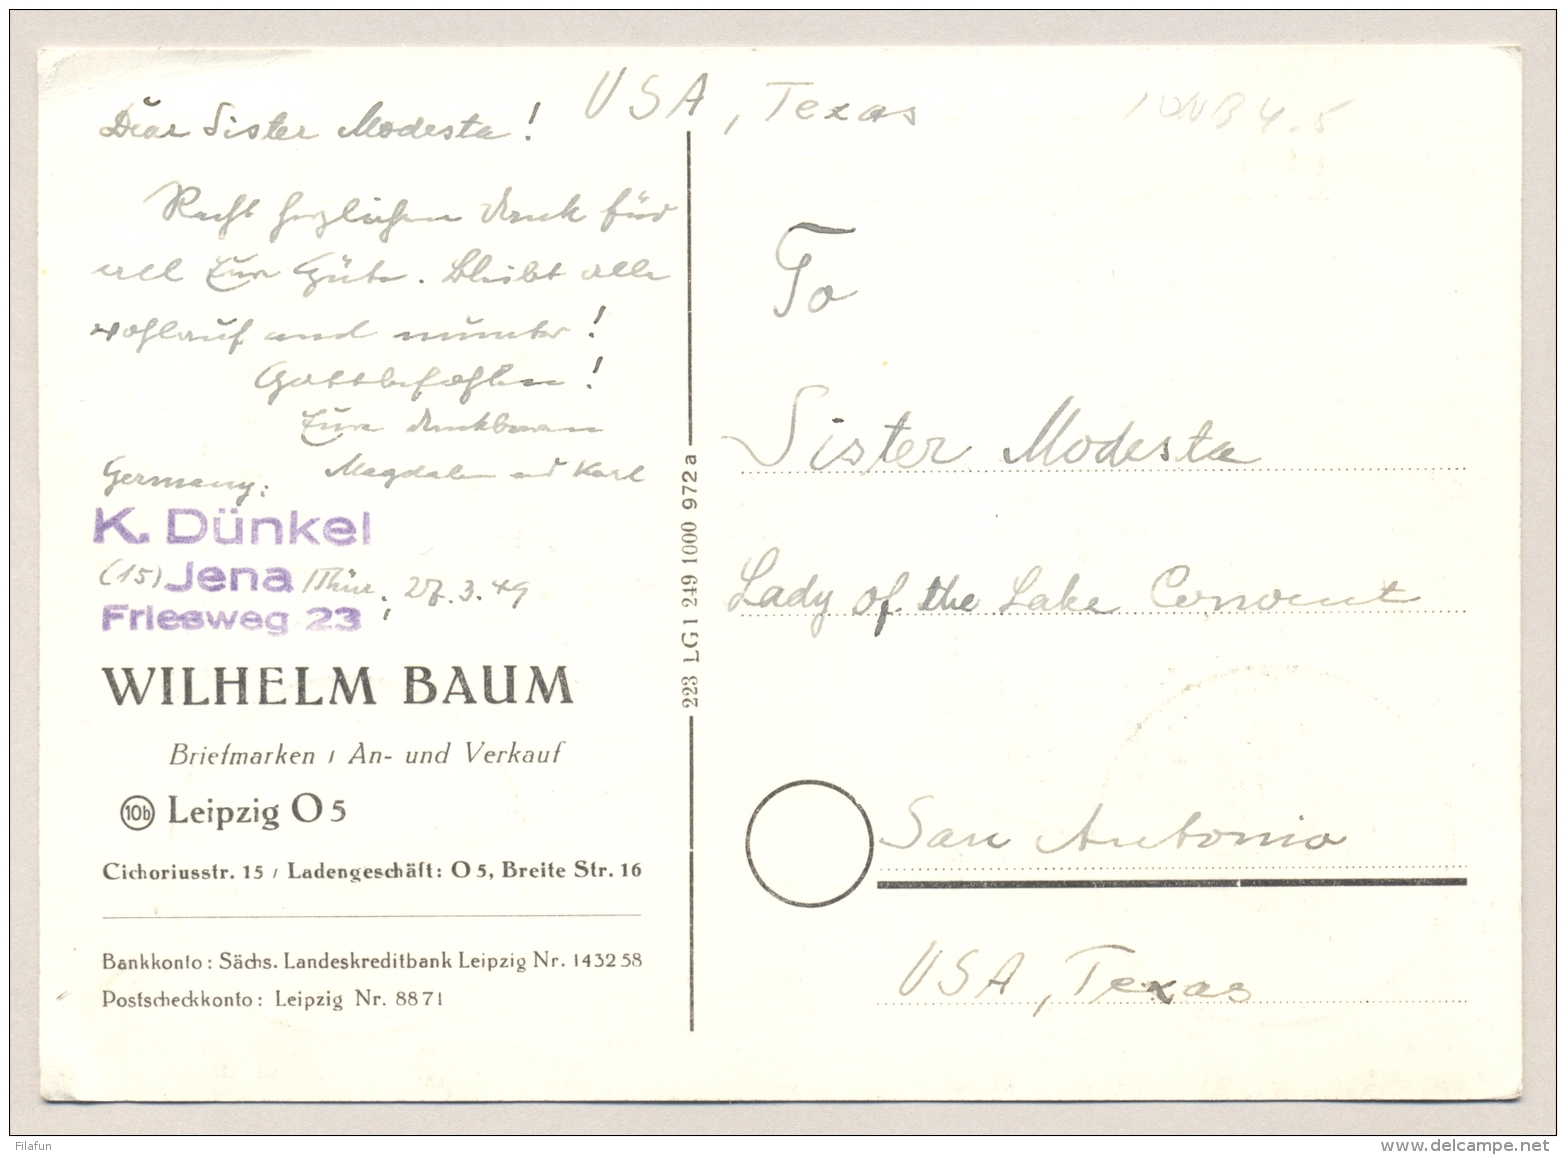 USA, Texas
Dear Sister Modesta!
Recht herzlichen Dank für
all Eure Güte. Bleibt alle
wohlauf und munter!
Gottbefohlen!
Eure dankbaren
Magdalen und Karl
Germany:
K. Dünkel
(15) Jena /Thür., 27.3.49
Friesweg 23
WILHELM BAUM
Briefmarken / An- und Verkauf
10b Leipzig O 5
Cichoriusstr. 15 / Ladengeschäft: O 5, Breite Str. 16
Bankkonto: Sächs. Landeskreditbank Leipzig Nr. 1432 58
Postscheckkonto: Leipzig Nr. 8871
223 LG1 249 1000 972 a
To
Sister Modesta
Lady of the Lake Convent
San Antonio
USA, Texas
Filafun
www.delcampe.net